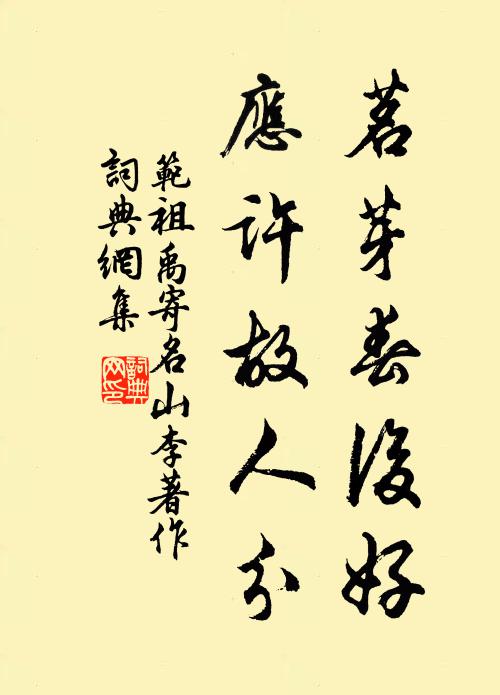 茗芽春後好
應許故人分
範祖禹寄名山李著作
詞典網集
詞典网印